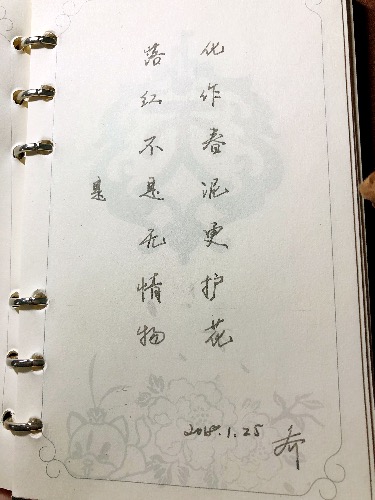 是
落红不是无情物
化作春泥更护花
2018.1.25